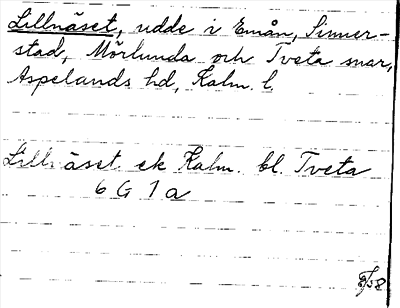 Lillnäset, udde i Emån, Sinner-
stad, Mörlunda och Tveta snar,
Aspelands hd, Kalm. l.
Lilln äset ek Kalm. bl. Tveta
6 G 1 a